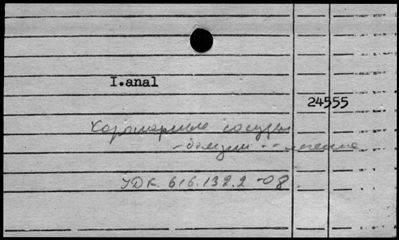 I.anal
24555
Коронарные сосуды
- болезни -- лечение
УДК. 616.132.2-08